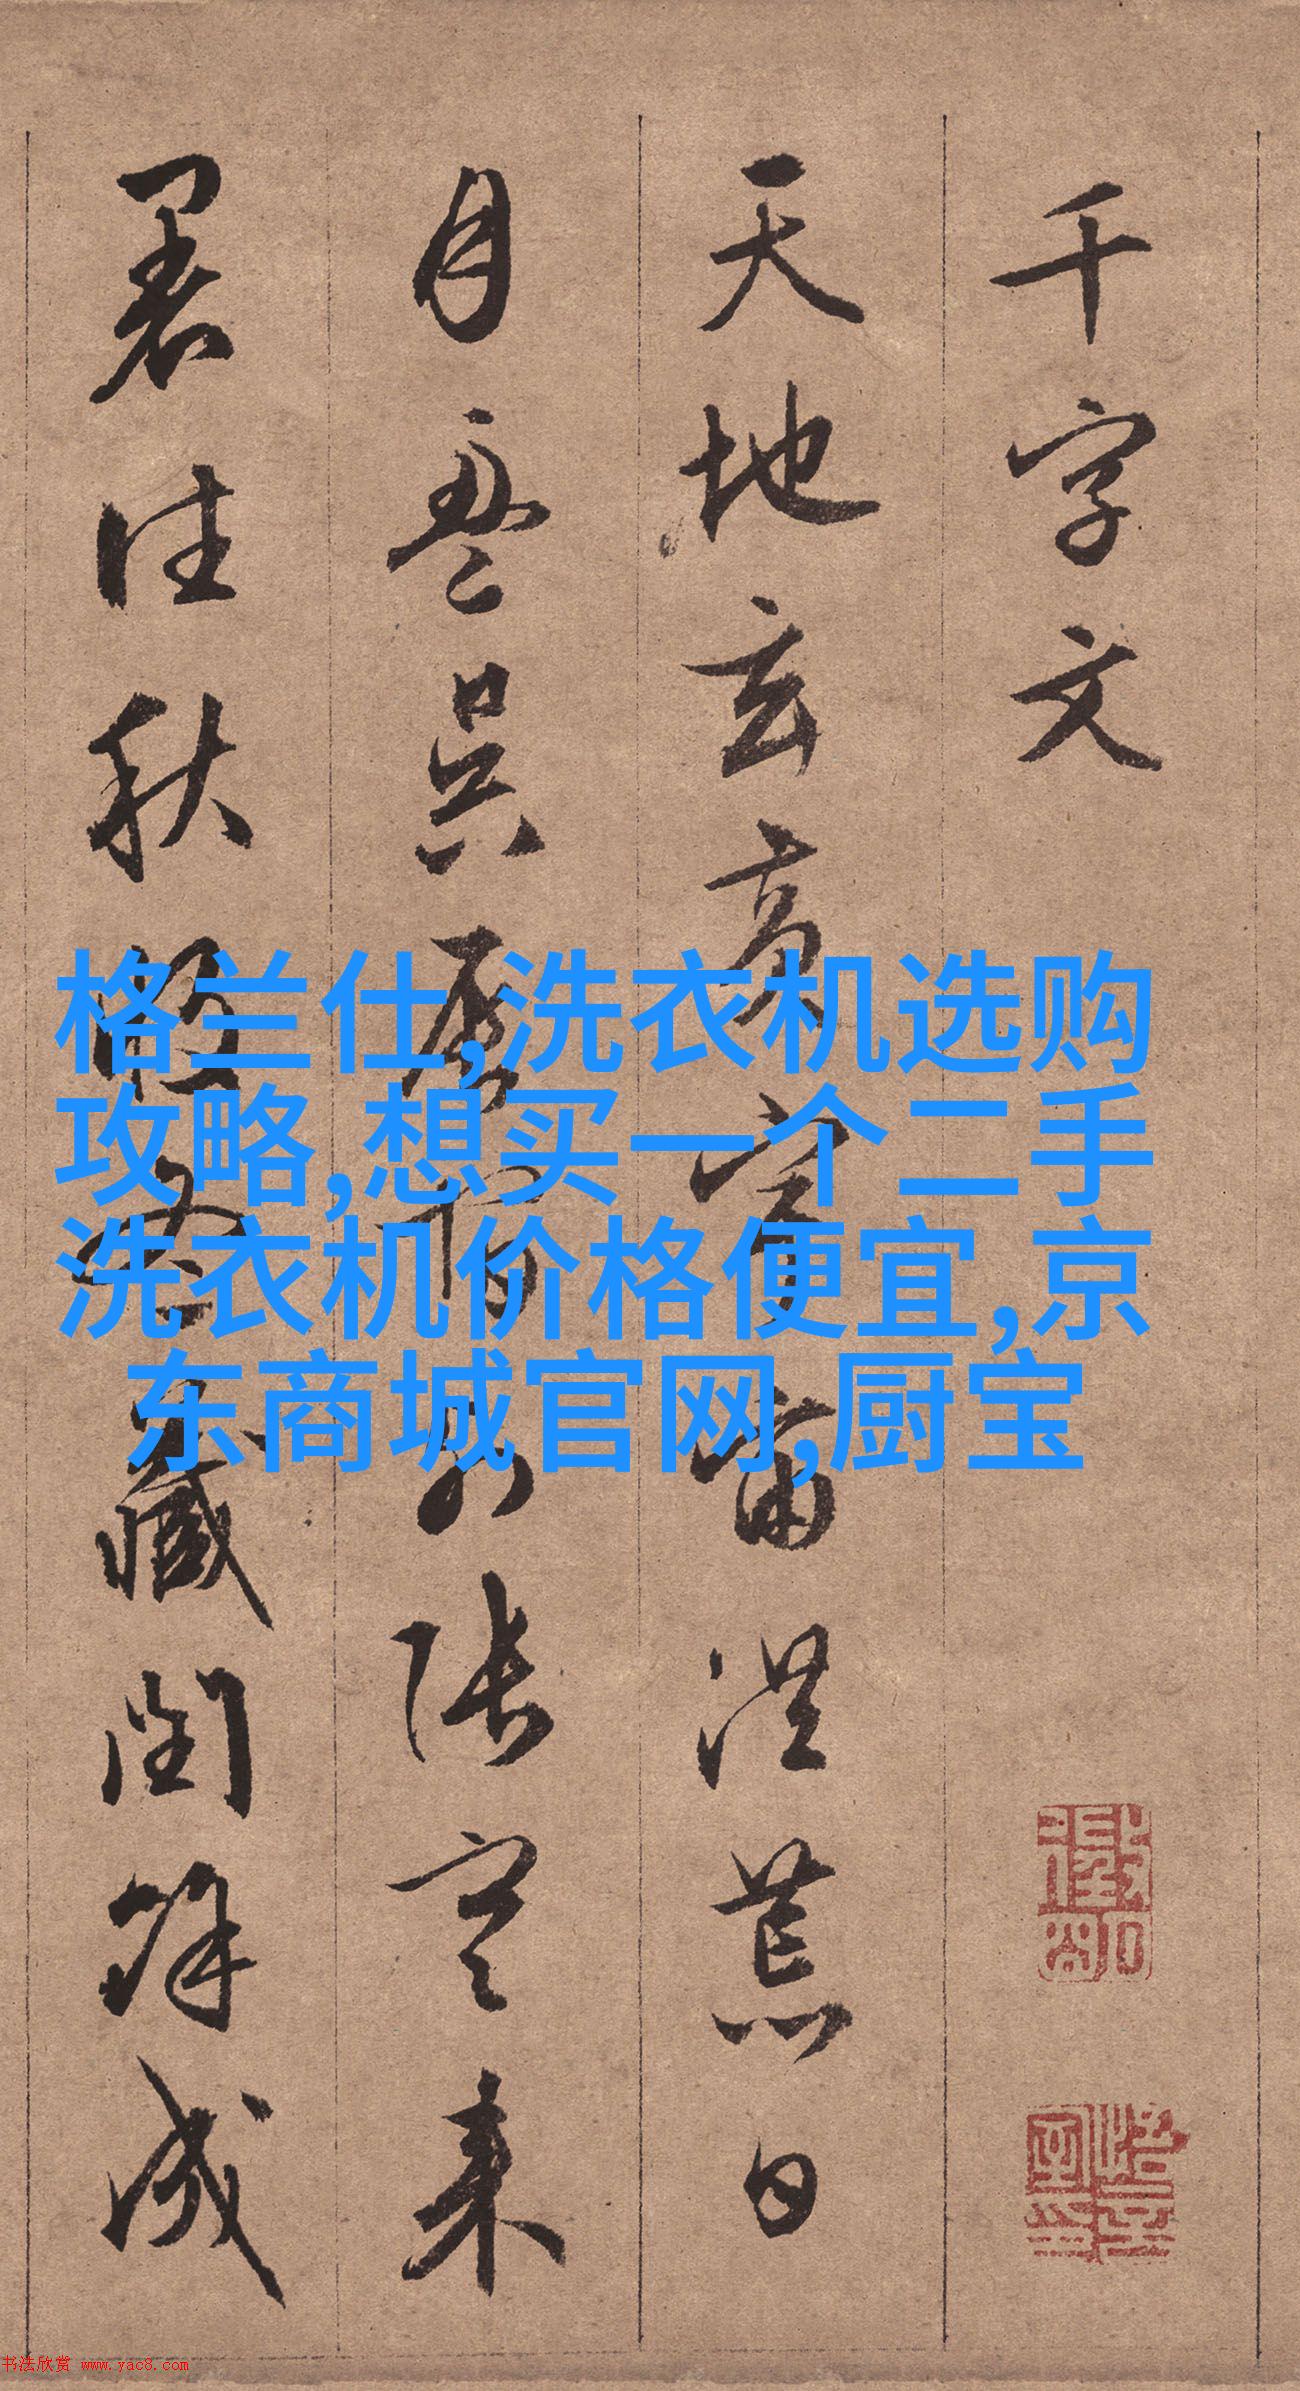 千字文
天地玄黄宇宙洪荒日
月盈昃辰宿列张寒来
暑往秋收冬藏闰余成
格兰仕,洗衣机选购
攻略,想买一个二手
洗衣机价格便宜,京
东商城官网,厨宝
书法欣赏 www.yac8.com